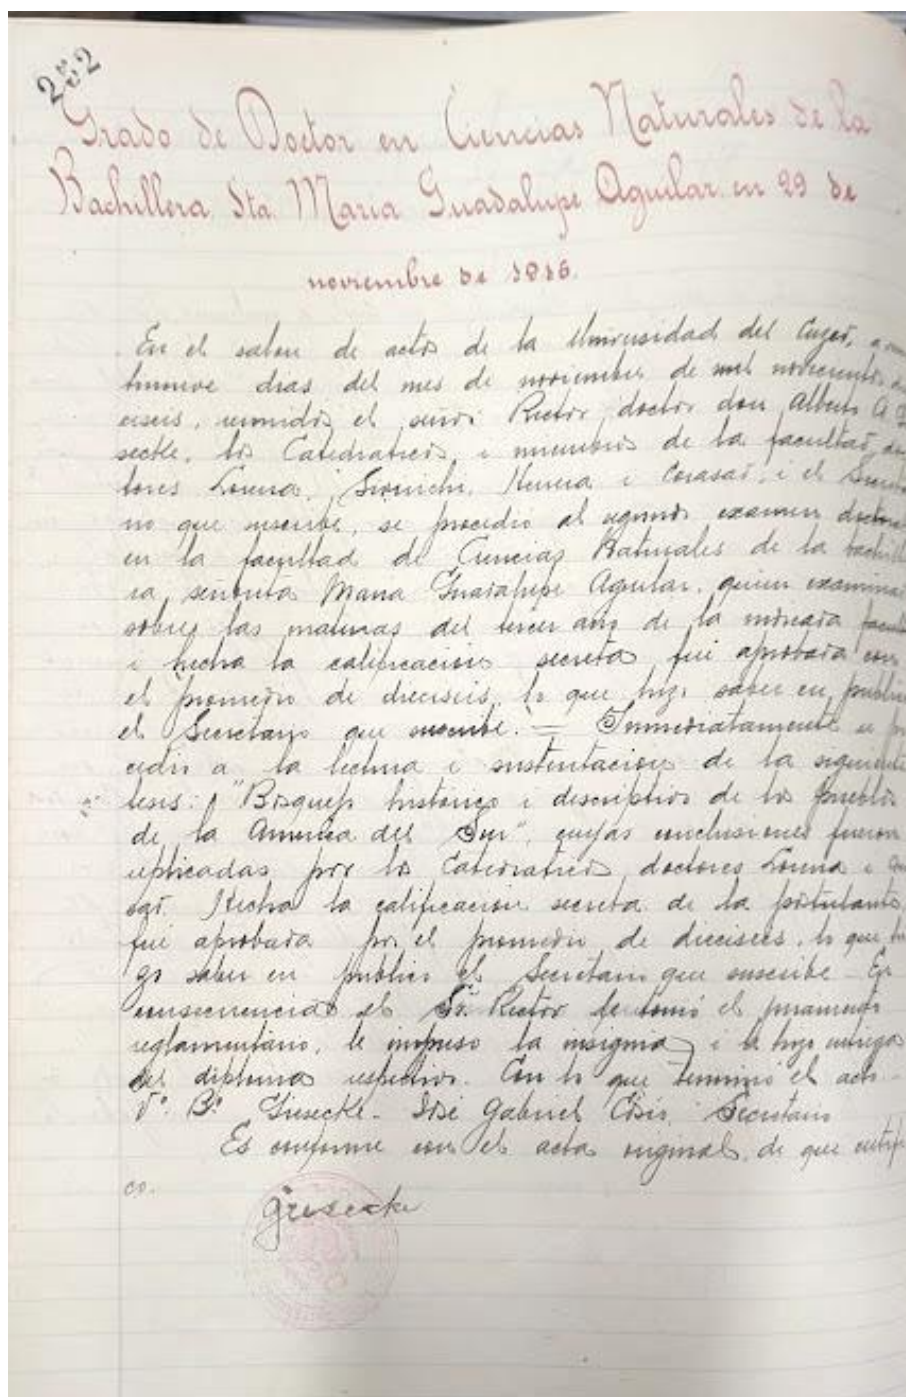 252
Grado de Doctor en Ciencias Naturales de la
Bachillera Sta. Maria Guadalupe Aguilar en 29 de
noviembre de 1916.
En el salon de actos de la Universidad del Cuzco, a
tinueve dias del mes de noviembre de mil novecientos
ciseis, reunidos el señor Rector, doctor don Alberto A.
secke, los Catedraticos i miembros de la facultad, doc
tores Lorena, Herrera i Corasao, i el Secreta
rio que suscribe, se procedio al segundo examen doctoral
en la facultad de Ciencias Naturales de la bachille
ra, señorita Maria Guadalupe Aguilar, quien examinada
sobre las materias del tercer año de la indicada facul
i hecha la calificacion secreta, fué aprobada con
el promedio de dieciseis, lo que hizo saber en publico
el Secretario que suscribe. = Inmediatamente se pro
cedió a la lectura i sustentacion de la siguiente
tesis: "Bosquejo historico i descriptivo de los pueblos
de la America del Sur", cuyas conclusiones fueron
replicadas por los Catedraticos, doctores Lorena i Co
sao. Hecha la calificacion secreta de la postulante,
fué aprobada por el promedio de dieciseis, lo que hi
zo saber en publico el Secretario que suscribe. En
consecuencia el Sr. Rector le tomó el juramento
reglamentario, le impuso la insignia i le hizo entrega
del diploma respectivo. Con lo que terminó el acto.
V°. B°. Giesecke - José Gabriel Cosio, Secretario
Es conforme con el acta original, de que certifi
co.
Giesecke